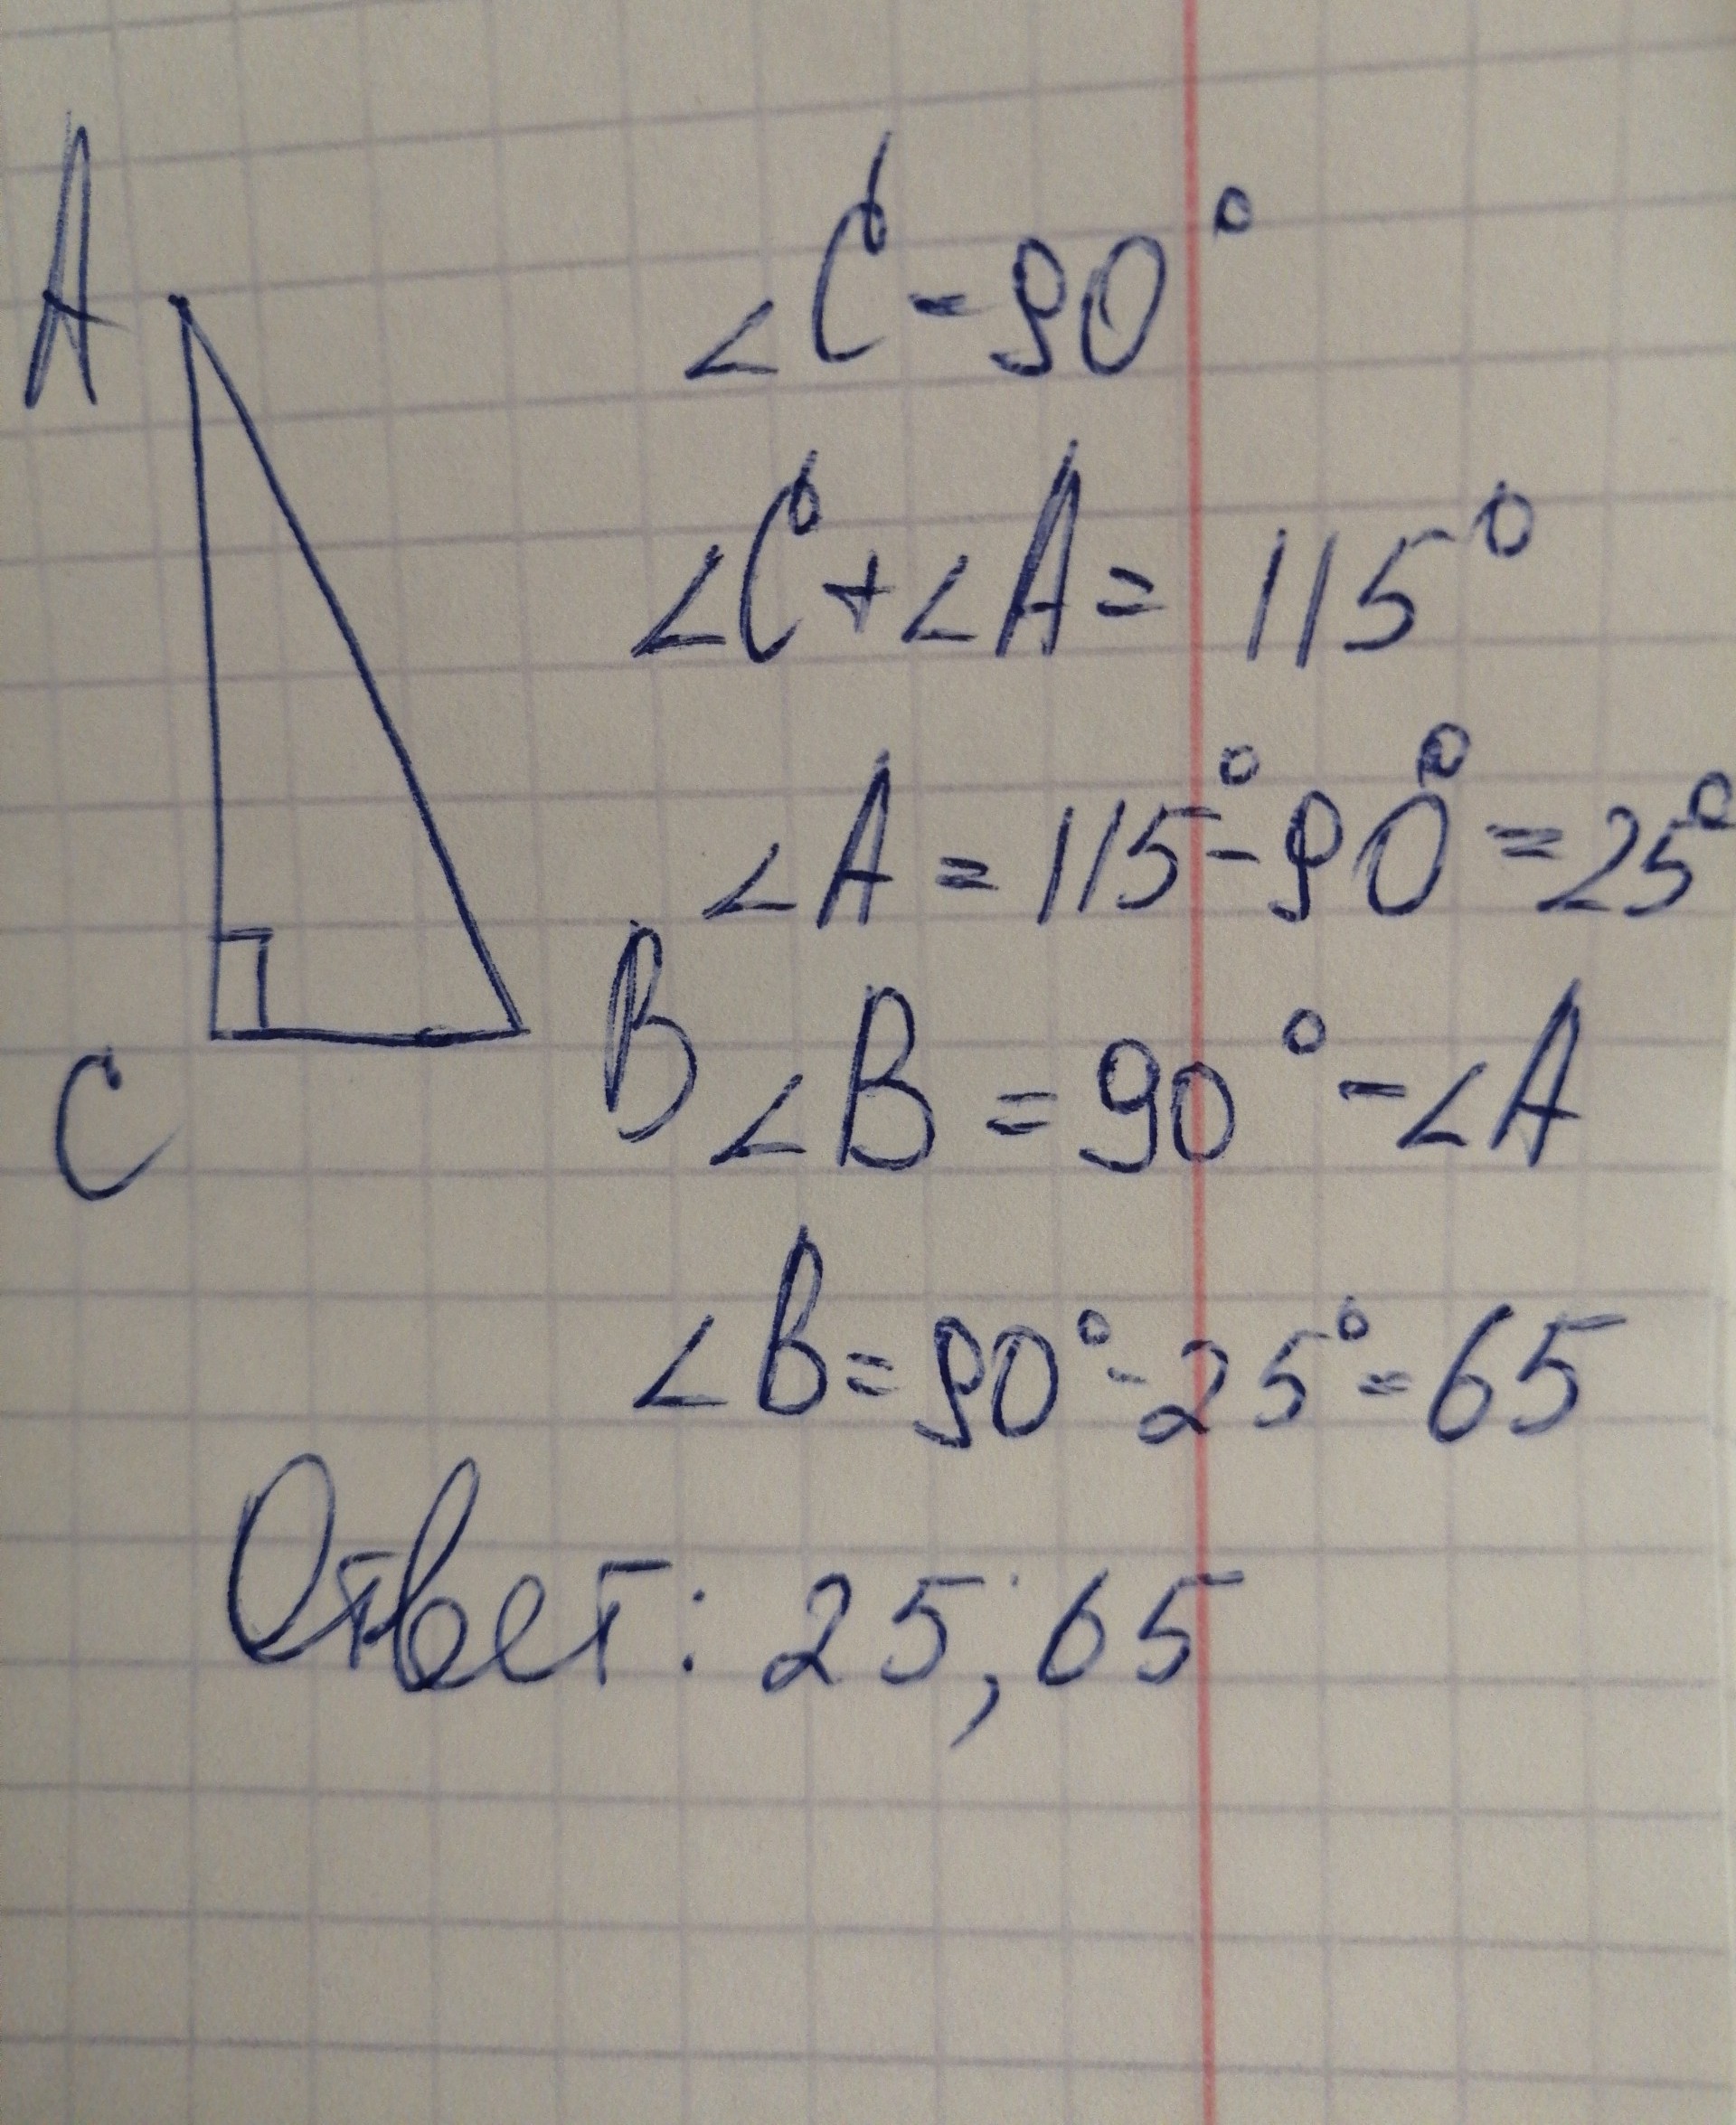 A
∠C = 90°
∠C + ∠A = 115°
∠A = 115° - 90° = 25°
B
∠B = 90° - ∠A
C
∠B = 90° - 25° = 65
Ответ: 25; 65